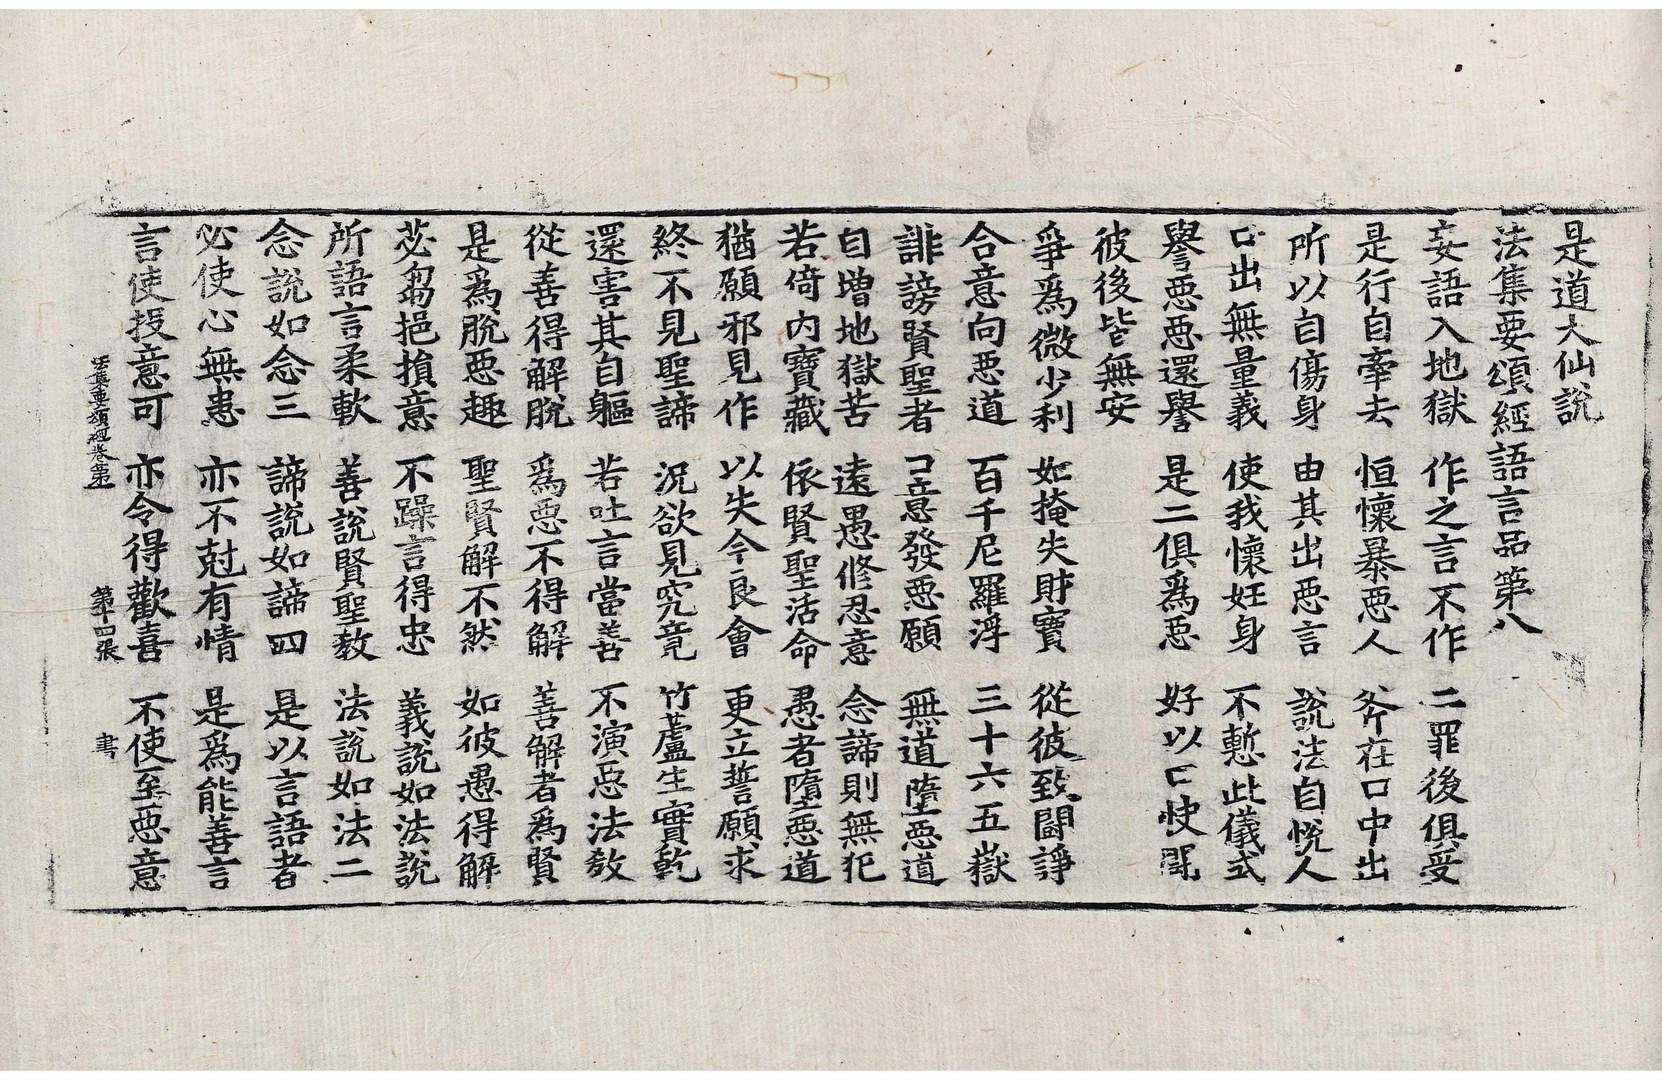 是道大仙說
法集要頌經語言品第八
妄語入地獄 作之言不作 二罪後俱受
是行自牽去 恒懷暴惡人 斧在口中出
所以自傷身 由其出惡言 說法自悅人
口出無量義 使我懷妊身 不慙此儀式
譽惡惡還譽 是二俱爲惡 好以口快鬪
彼後皆無安
爭爲微少利 如掩失財寶 從彼致鬪諍
合意向惡道 百千尼羅浮 三十六五獄
誹謗賢聖者 口意發惡願 無道墮惡道
自增地獄苦 遠愚修忍意 念諦則無犯
若倚內寶藏 依賢聖活命 愚者墮惡道
猶願邪見作 以失今良會 更立誓願求
終不見聖諦 況欲見究竟 竹蘆生實乾
還害其自軀 若吐言當善 不演惡法教
從善得解脫 爲惡不得解 善解者爲賢
是爲脫惡趣 聖賢解不然 如彼愚得解
苾芻挹損意 不躁言得忠 義說如法說
所語言柔軟 善說賢聖教 法說如法二
念說如念三 諦說如諦四 是以言語者
必使心無患 亦不尅有情 是爲能善言
言使投意可 亦令得歡喜 不使至惡意
法集要頌經卷第一 第十四張 書